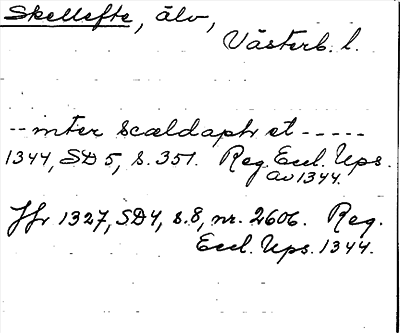 Skellefte, älv,
Västerb. l.
-- inter Scældaptr et -----
1344, SD 5, s. 351. Reg. Eccl. Ups.
av 1344.
Jfr 1327, SD 4, s. 8, nr. 2606. Reg.
Eccl. Ups. 1344.